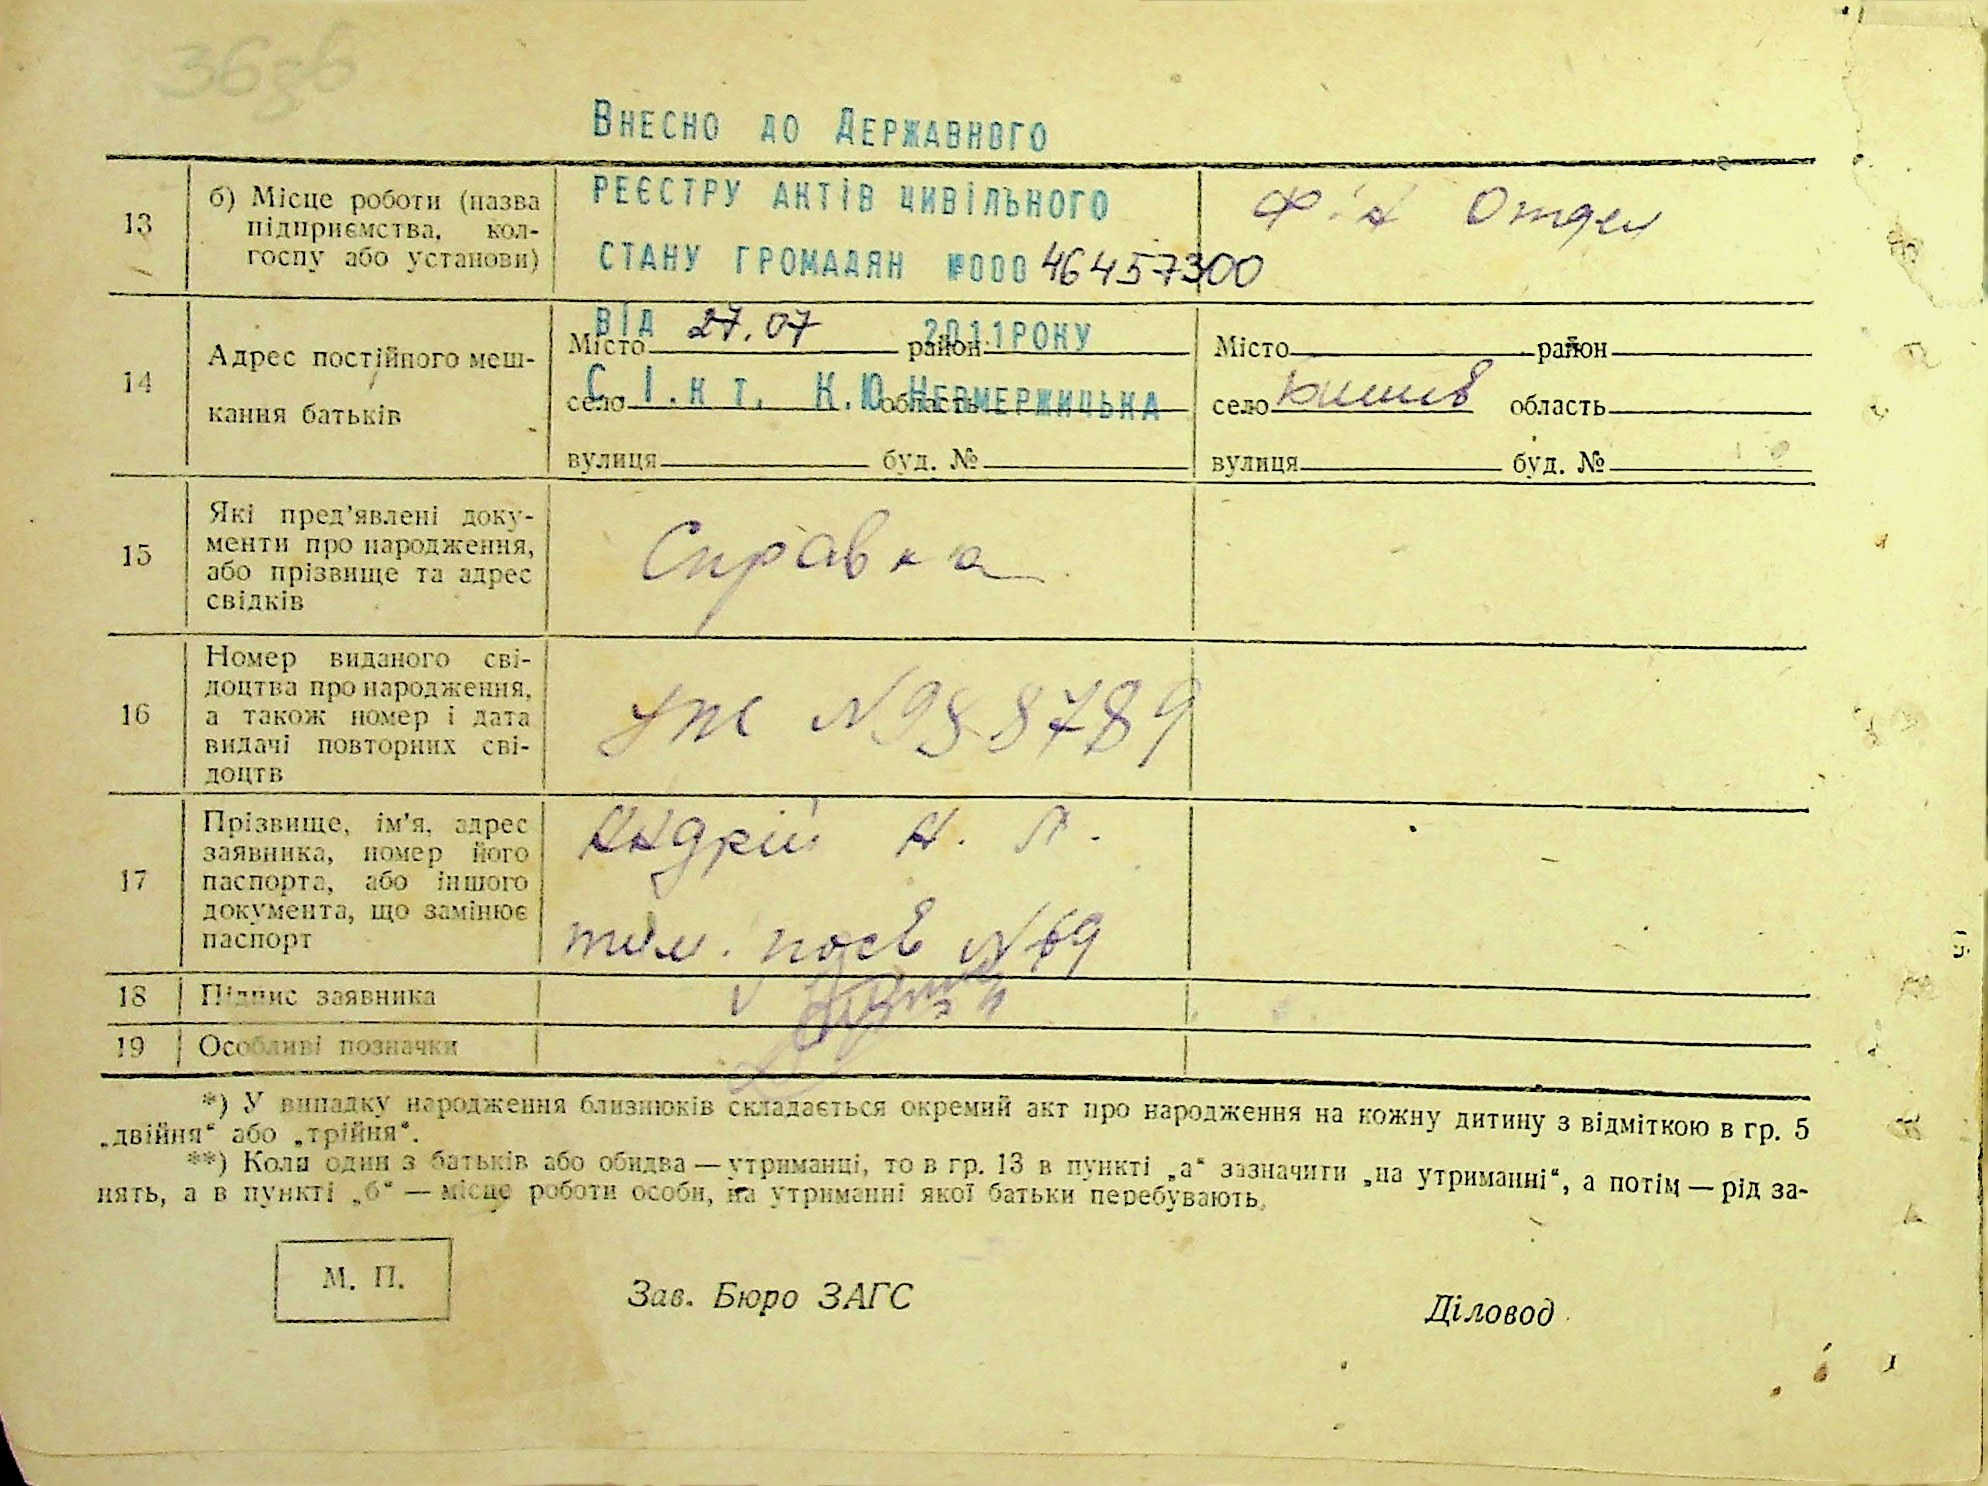 ВНЕСНО ДО ДЕРЖАВНОГО
РЕЄСТРУ АКТІВ ЦИВІЛЬНОГО
СТАНУ ГРОМАДЯН №000 46457300
ВІД 27.07 2011РОКУ
С.І.КТ. К.Ю.НЕВМЕРЖИЦЬКА
13
б) Місце роботи (назва
підприємства, кол-
госпу або установи)
Отдел
14
Адрес постійного меш-
кання батьків
Місто район
село область
вулиця буд. №
Місто район
село область
вулиця буд. №
15
Які пред'явлені доку-
менти про народження,
або прізвище та адрес
свідків
Справка
16
Номер виданого сві-
доцтва про народження,
а також номер і дата
видачі повторних сві-
доцтв
№988789
17
Прізвище, ім'я, адрес
заявника, номер його
паспорта, або іншого
документа, що замінює
паспорт
Андрій А. Л.
тим. посв №69
18
Підпис заявника
19
Особливі позначки
*) У випадку народження близнюків складається окремий акт про народження на кожну дитину з відміткою в гр. 5
„двійня“ або „трійня“.
**) Коли один з батьків або обидва — утриманці, то в гр. 13 в пункті „а“ зазначити „на утриманні“, а потім — рід за-
нять, а в пункті „б“ — місце роботи особи, на утриманні якої батьки перебувають.
М. П.
Зав. Бюро ЗАГС
Діловод